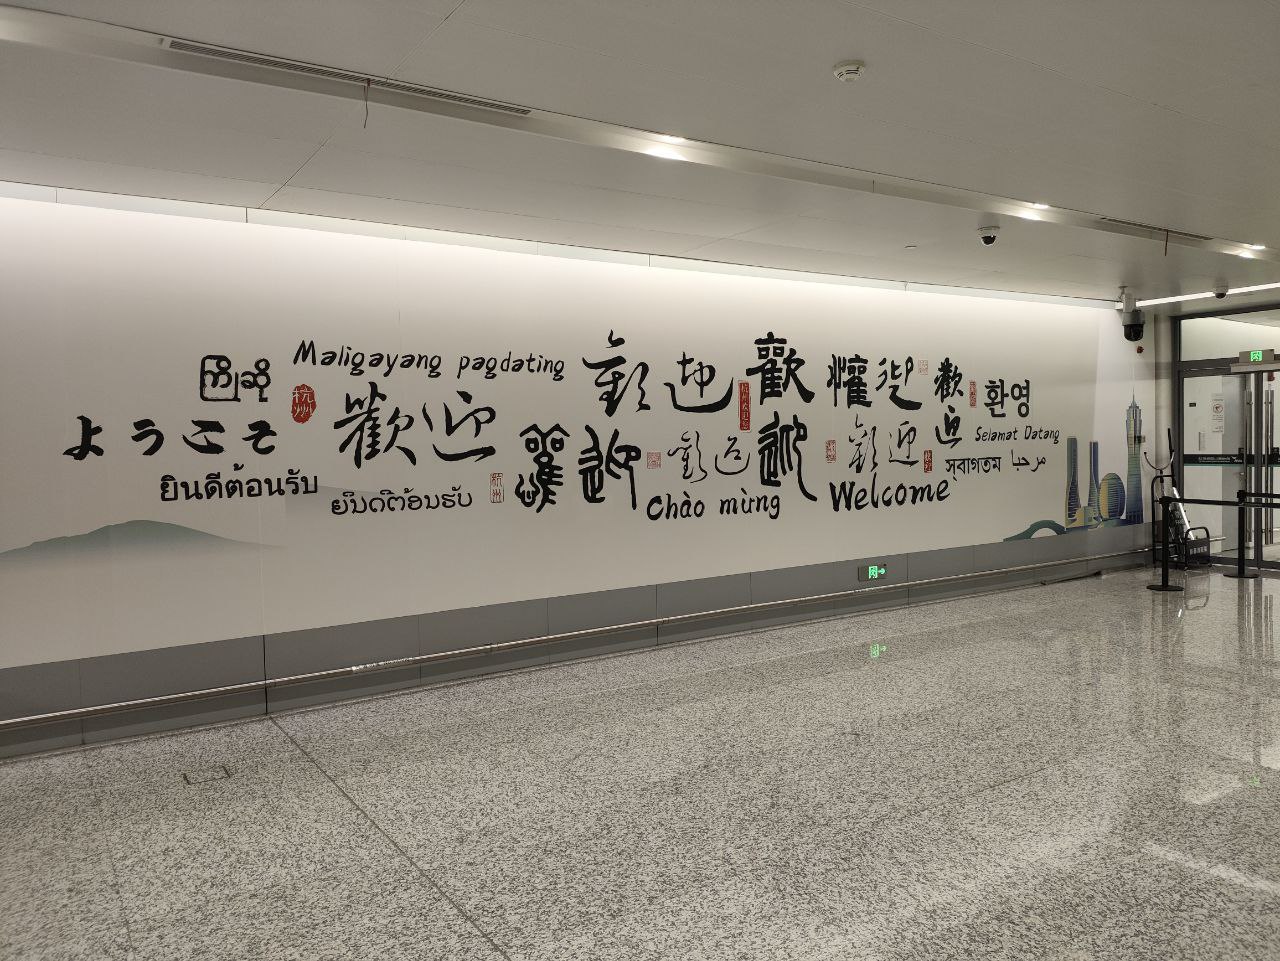 ကြိုဆို
Maligayang pagdating
ようこそ
杭州
歡迎
歡迎
歡迎
歡迎
歡迎
환영
ยินดีต้อนรับ
ຍິນດີຕ້ອນຮັບ
杭州
歡迎
歡迎
Chào mừng
歡迎
Welcome
Selamat Datang
স্বাগতম
مرحبا